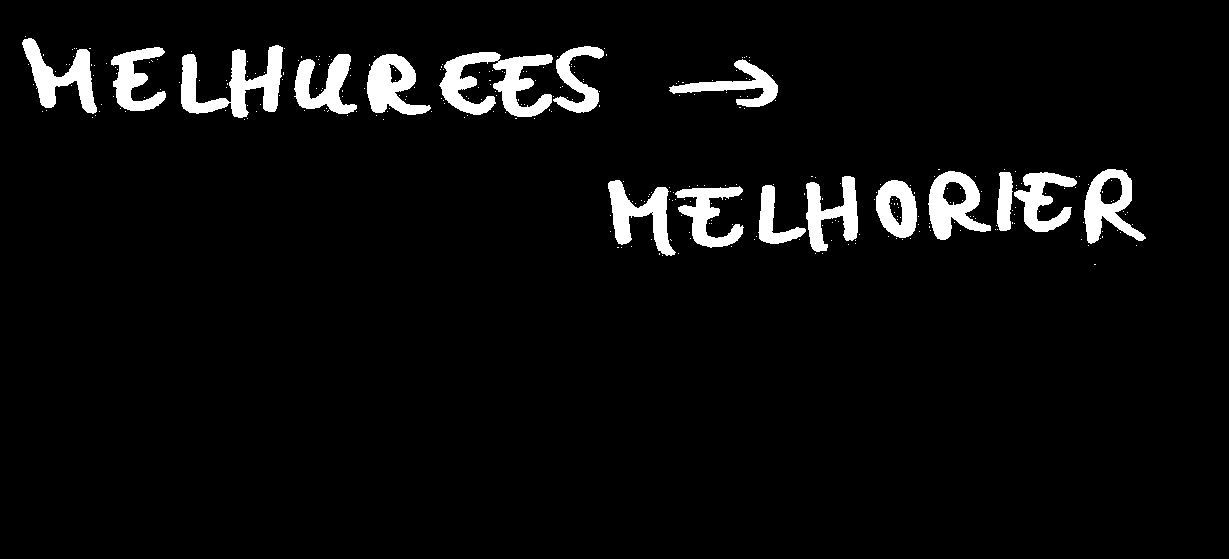 MELHUREES →
MELHORIER